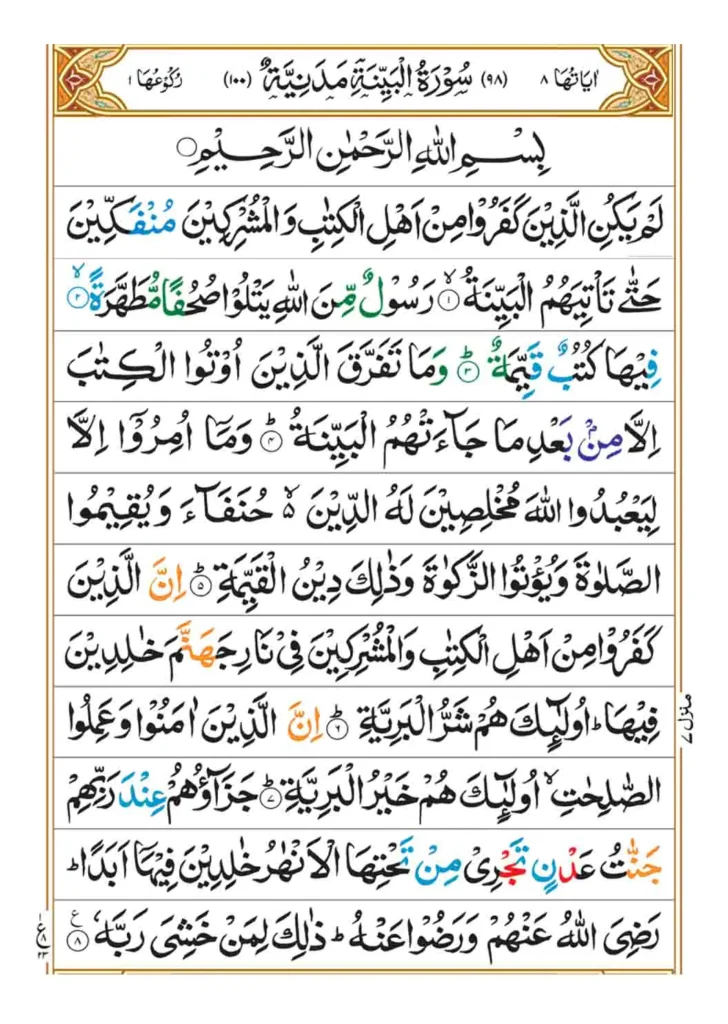 اٰيَاتُهَا ٨ (٩٨) سُوْرَةُ الْبَيِّنَةِ مَدَنِيَّةٌ (١٠٠) رُكُوْعُهَا ١
بِسْمِ اللّٰهِ الرَّحْمٰنِ الرَّحِيْمِ ○
لَمْ يَكُنِ الَّذِيْنَ كَفَرُوْا مِنْ اَهْلِ الْكِتٰبِ وَالْمُشْرِكِيْنَ مُنْفَكِّيْنَ
حَتّٰى تَاْتِيَهُمُ الْبَيِّنَةُ ۙ﴿١﴾ رَسُوْلٌ مِّنَ اللّٰهِ يَتْلُوْا صُحُفًا مُّطَهَّرَةً ۙ﴿٢﴾
فِيْهَا كُتُبٌ قَيِّمَةٌ ؕ﴿٣﴾ وَمَا تَفَرَّقَ الَّذِيْنَ اُوْتُوا الْكِتٰبَ
اِلَّا مِنْۢ بَعْدِ مَا جَآءَتْهُمُ الْبَيِّنَةُ ؕ﴿٤﴾ وَمَاۤ اُمِرُوْۤا اِلَّا
لِيَعْبُدُوا اللّٰهَ مُخْلِصِيْنَ لَهُ الدِّيْنَ ۙ۬ حُنَفَآءَ وَيُقِيْمُوا
الصَّلٰوةَ وَيُؤْتُوا الزَّكٰوةَ وَذٰلِكَ دِيْنُ الْقَيِّمَةِ ؕ﴿٥﴾ اِنَّ الَّذِيْنَ
كَفَرُوْا مِنْ اَهْلِ الْكِتٰبِ وَالْمُشْرِكِيْنَ فِىْ نَارِ جَهَنَّمَ خٰلِدِيْنَ
فِيْهَا ؕ اُولٰٓئِكَ هُمْ شَرُّ الْبَرِيَّةِ ؕ﴿٦﴾ اِنَّ الَّذِيْنَ اٰمَنُوْا وَعَمِلُوا
الصّٰلِحٰتِ ۙ اُولٰٓئِكَ هُمْ خَيْرُ الْبَرِيَّةِ ؕ﴿٧﴾ جَزَآؤُهُمْ عِنْدَ رَبِّهِمْ
جَنّٰتُ عَدْنٍ تَجْرِىْ مِنْ تَحْتِهَا الْاَنْهٰرُ خٰلِدِيْنَ فِيْهَاۤ اَبَدًا ؕ
رَضِىَ اللّٰهُ عَنْهُمْ وَرَضُوْا عَنْهُ ؕ ذٰلِكَ لِمَنْ خَشِىَ رَبَّهٗ ﴿٨﴾ ع
منزل ٧
١ ع ٨ ٢٣